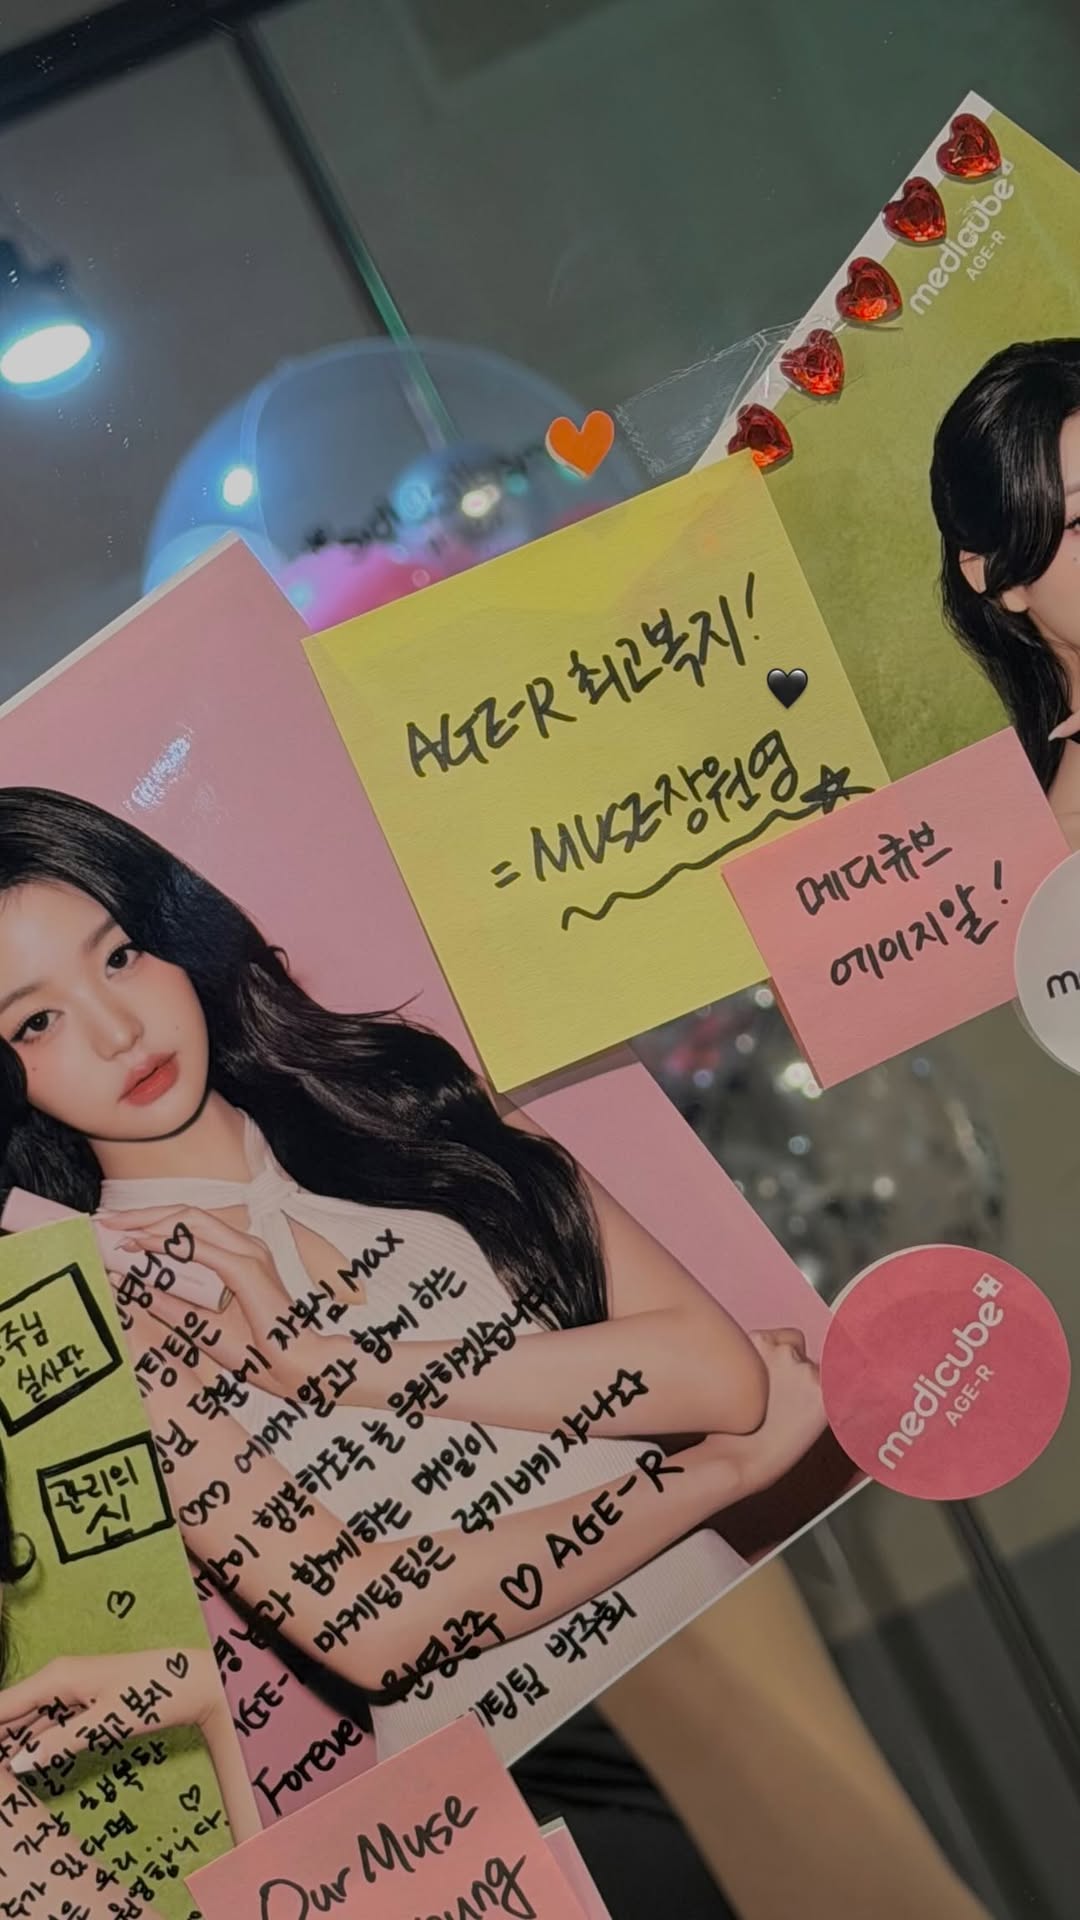 medicube
AGE-R
AGE-R 최고복지!
= MUSE장원영
메디큐브
에이지알!
medicube
AGE-R
주님
실사판
관리의
신
영님♡
팅팀은
님 덕분에 자부심 Max
에이지알과 함께 하는
행복하도록 늘 응원하겠습니다
과 함께하는 매일이
마케팅팀은 럭키비키쟈나☆
원영공주 ♡ AGE-R
팅팀 박주희
Forever
는 것.
지알의 최고 복지♡
가장 행복한
가 있다면
은 우리... ♡
원영합니다.
Our Muse